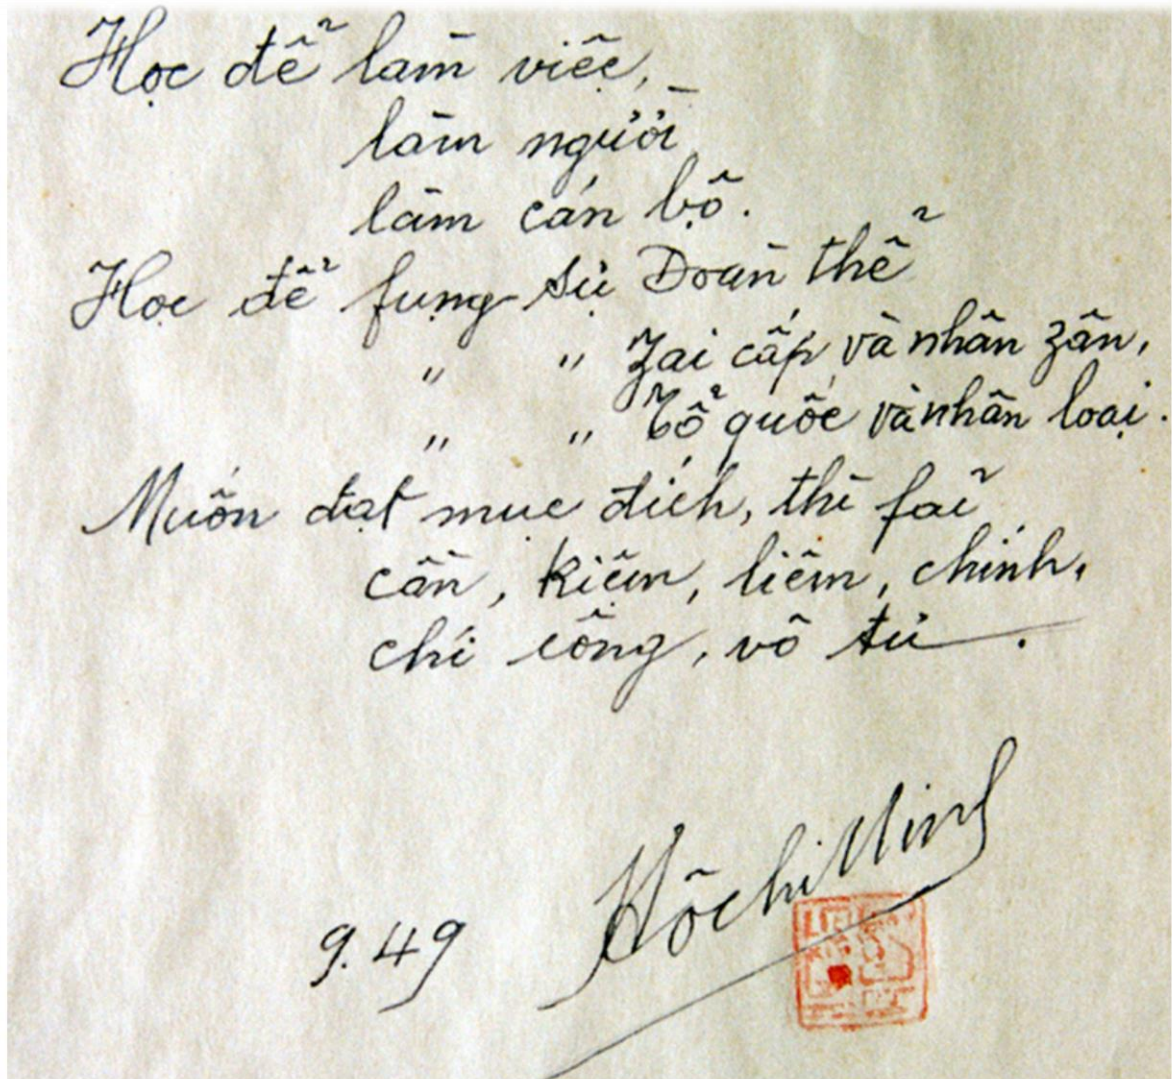 Học để làm việc,
làm người
làm cán bộ.
Học để fụng sự Đoàn thể
" " Zai cấp và nhân zân,
" " Tổ quốc và nhân loại.
Muốn đạt mục đích, thì fải
cần, kiệm, liêm, chính,
chí công, vô tư.
Hồ Chí Minh
9.49